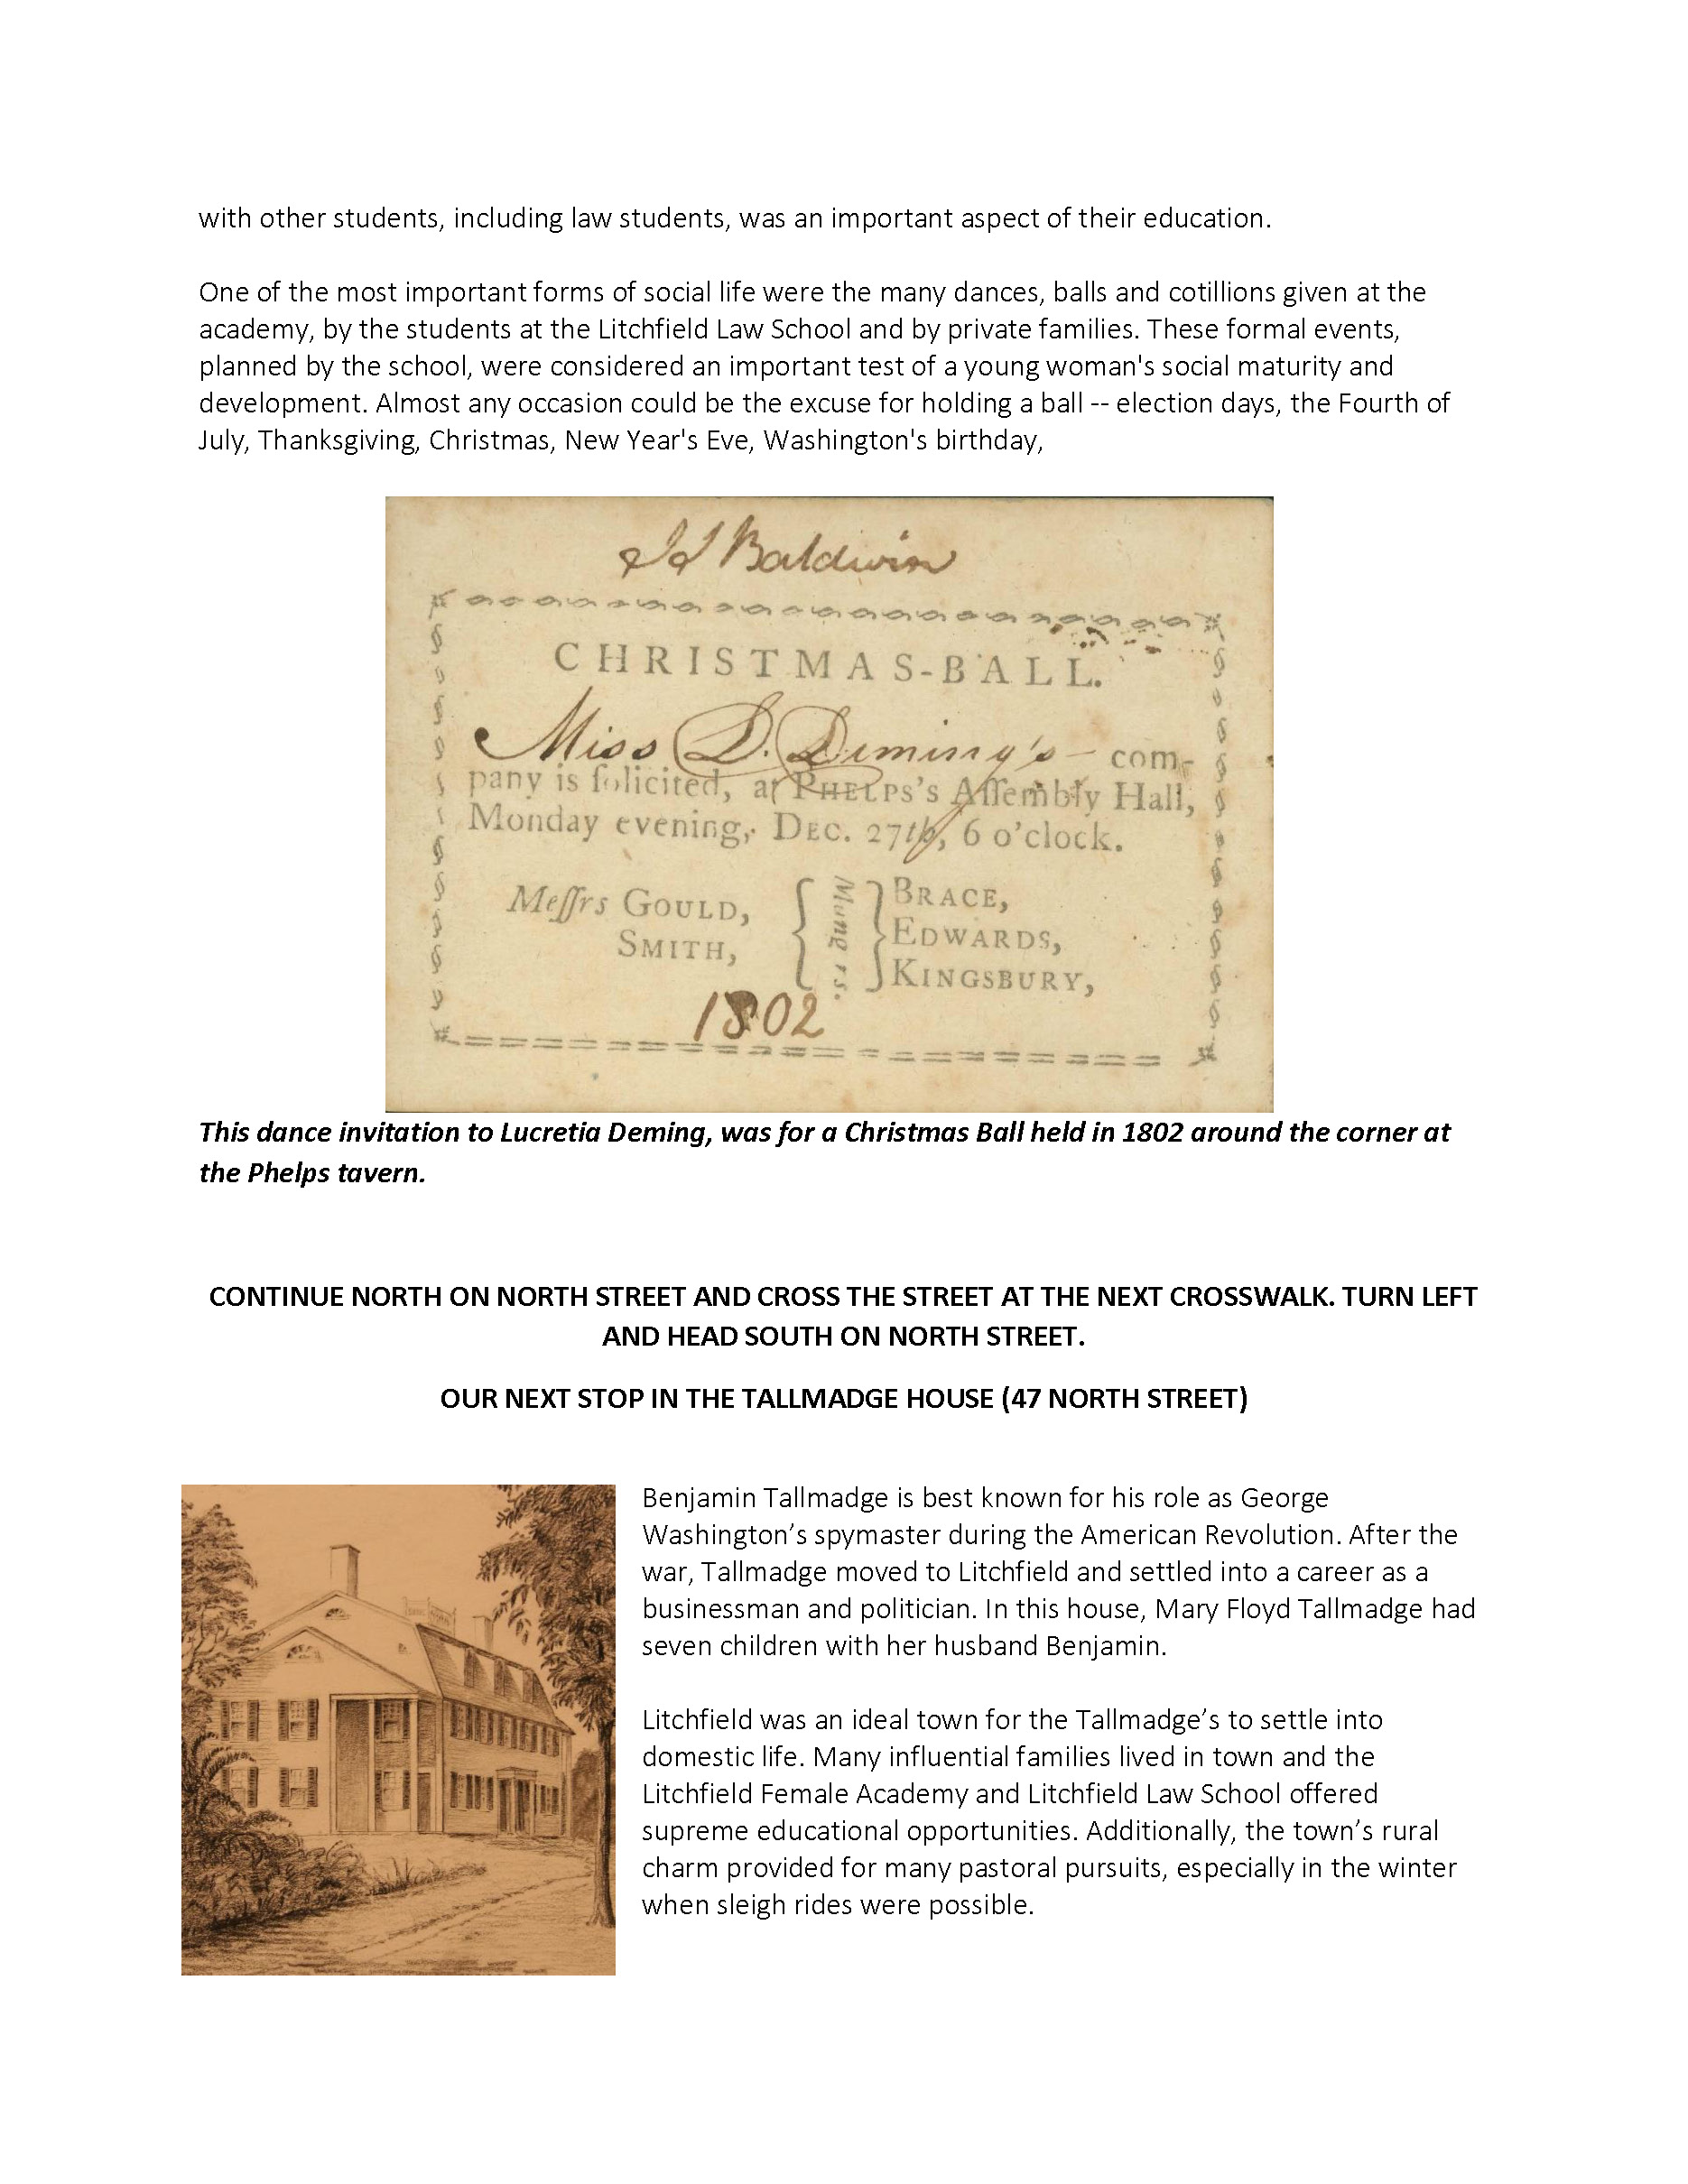 with other students, including law students, was an important aspect of their education.
One of the most important forms of social life were the many dances, balls and cotillions given at the
academy, by the students at the Litchfield Law School and by private families. These formal events,
planned by the school, were considered an important test of a young woman's social maturity and
development. Almost any occasion could be the excuse for holding a ball -- election days, the Fourth of
July, Thanksgiving, Christmas, New Year's Eve, Washington's birthday,
Baldwin
CHRISTMAS-BALL.
Miss D. Deming's com-
pany is ſolicited, at PHELPS's Aſſembly Hall,
Monday evening, DEC. 27th, 6 o'clock.
Meſſrs GOULD,
SMITH,
BRACE,
EDWARDS,
KINGSBURY,
1802
This dance invitation to Lucretia Deming, was for a Christmas Ball held in 1802 around the corner at
the Phelps tavern.
CONTINUE NORTH ON NORTH STREET AND CROSS THE STREET AT THE NEXT CROSSWALK. TURN LEFT
AND HEAD SOUTH ON NORTH STREET.
OUR NEXT STOP IN THE TALLMADGE HOUSE (47 NORTH STREET)
Benjamin Tallmadge is best known for his role as George
Washington’s spymaster during the American Revolution. After the
war, Tallmadge moved to Litchfield and settled into a career as a
businessman and politician. In this house, Mary Floyd Tallmadge had
seven children with her husband Benjamin.
Litchfield was an ideal town for the Tallmadge’s to settle into
domestic life. Many influential families lived in town and the
Litchfield Female Academy and Litchfield Law School offered
supreme educational opportunities. Additionally, the town’s rural
charm provided for many pastoral pursuits, especially in the winter
when sleigh rides were possible.